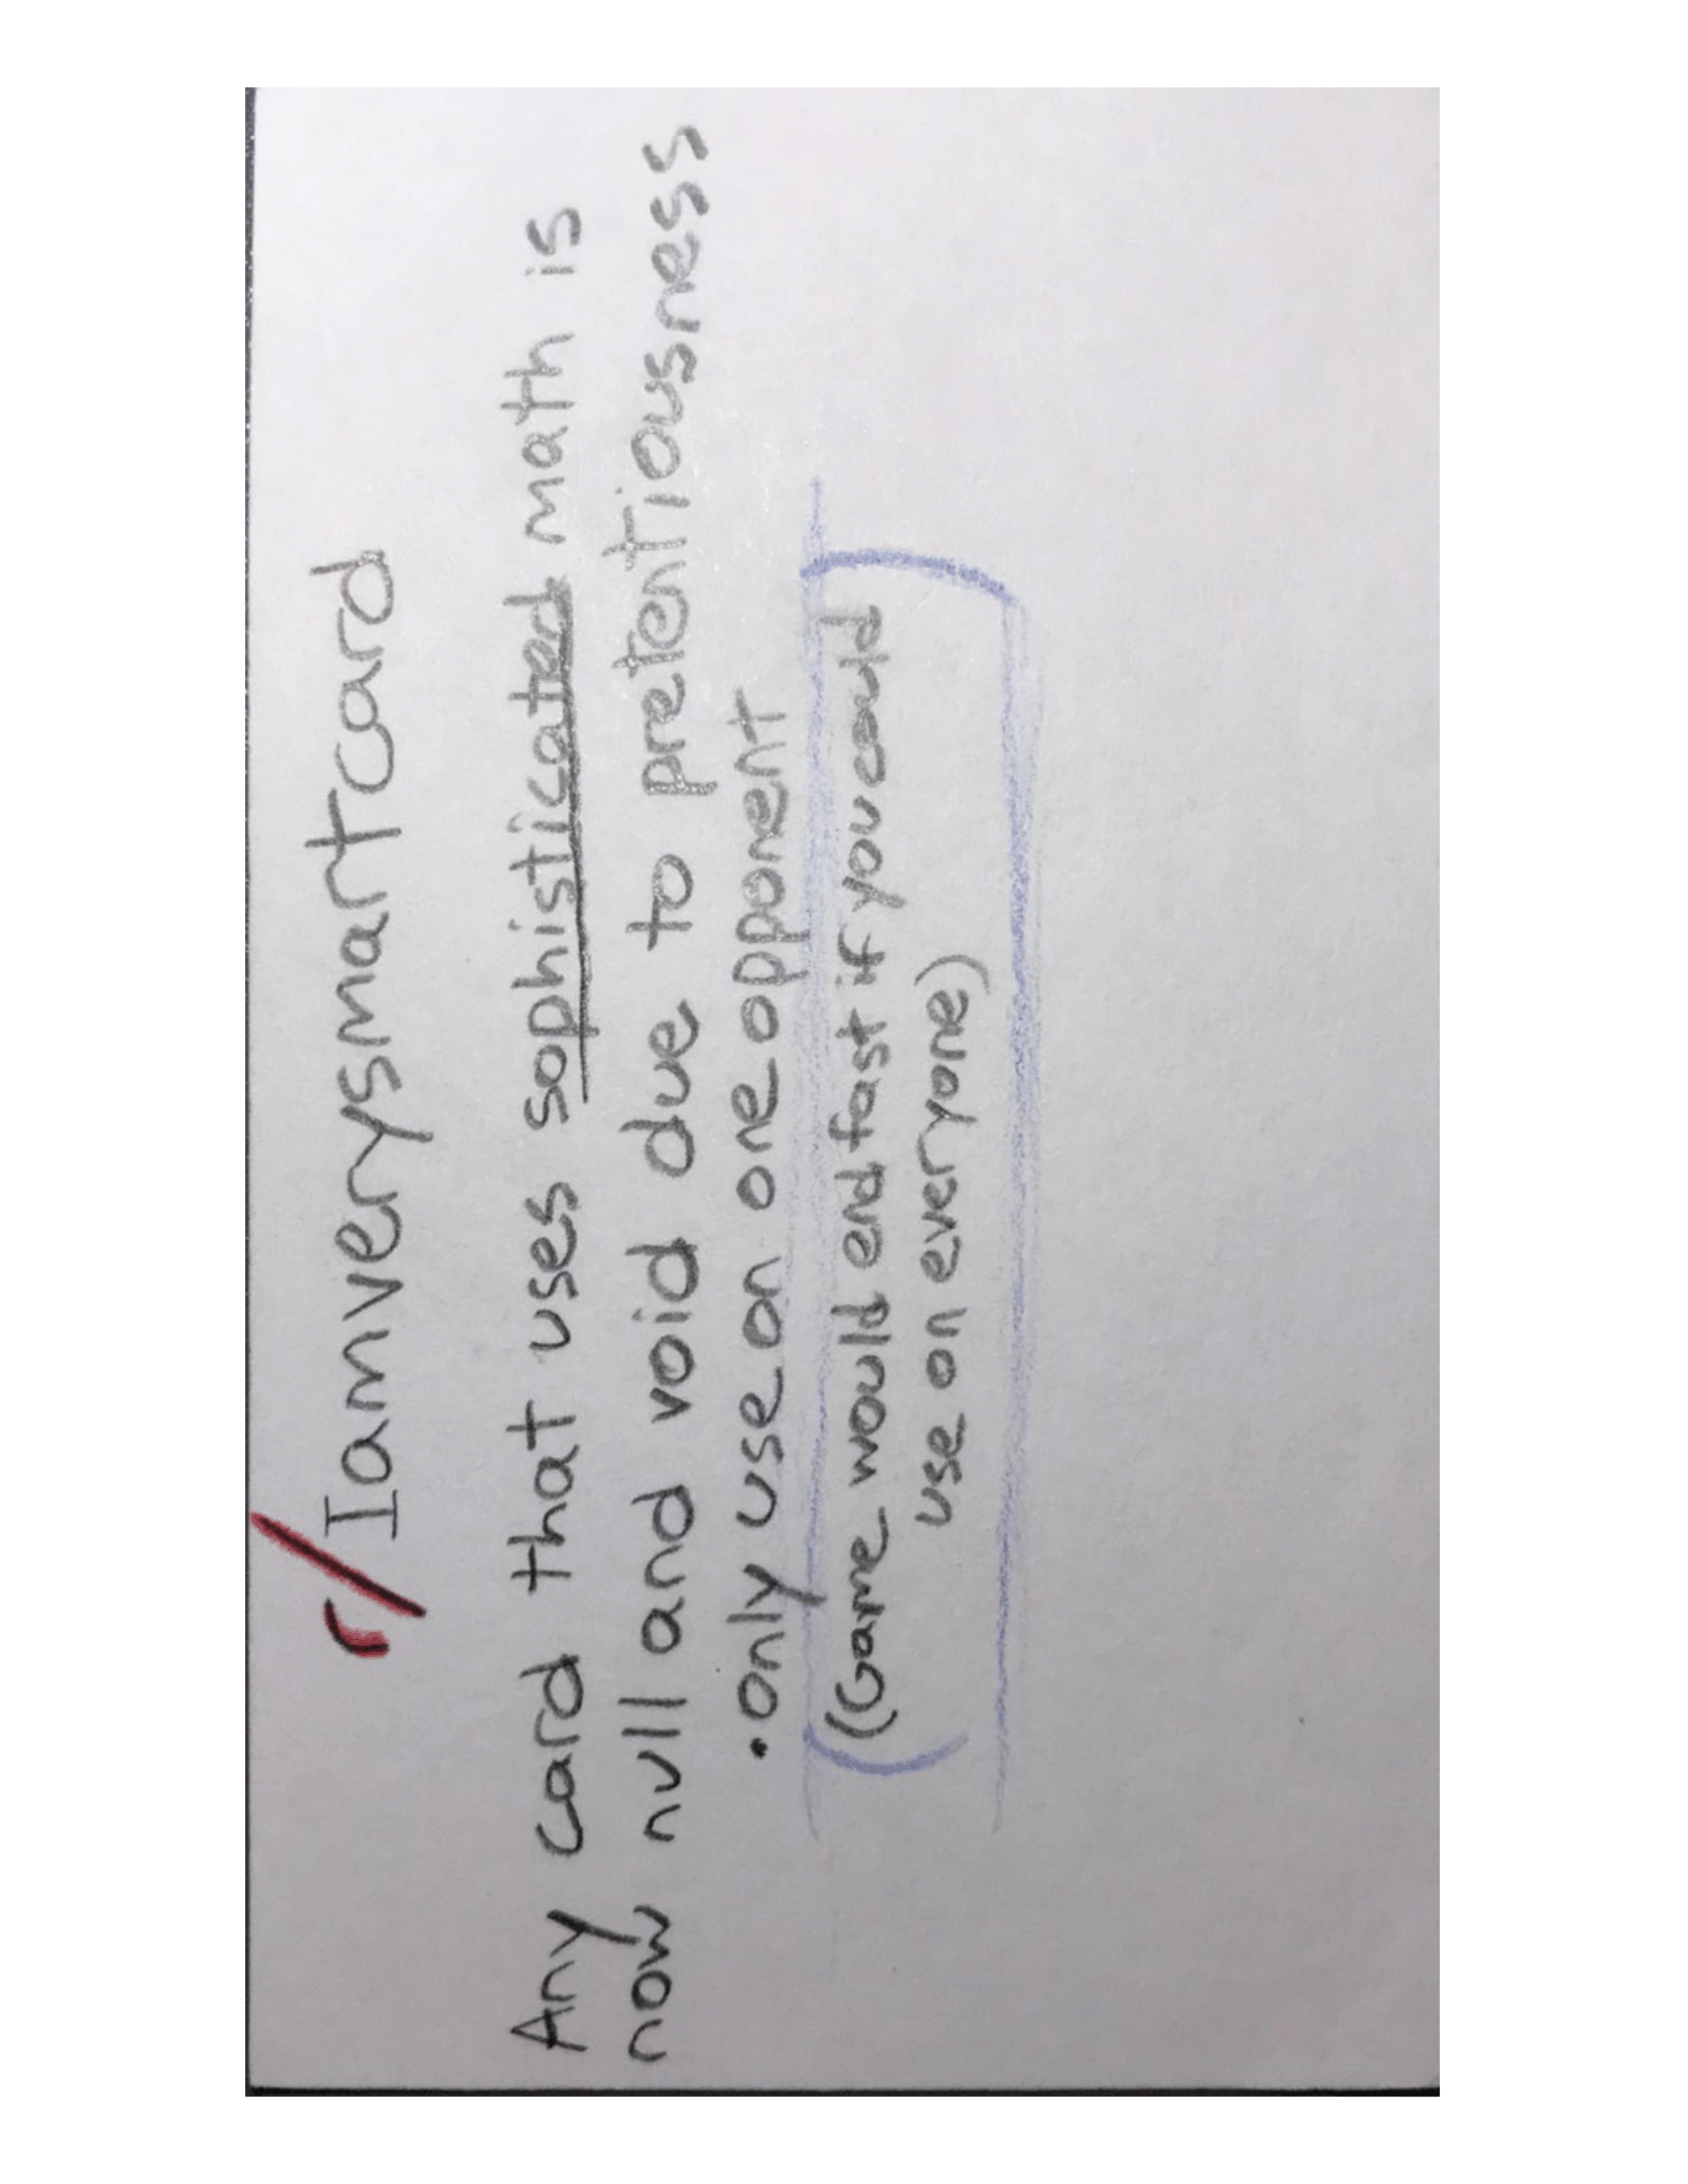 r/Iamverysmartcard
Any card that uses sophisticated math is
now null and void due to pretentiousness
•only use on one opponent
(Game would end fast if you could
use on everyone)